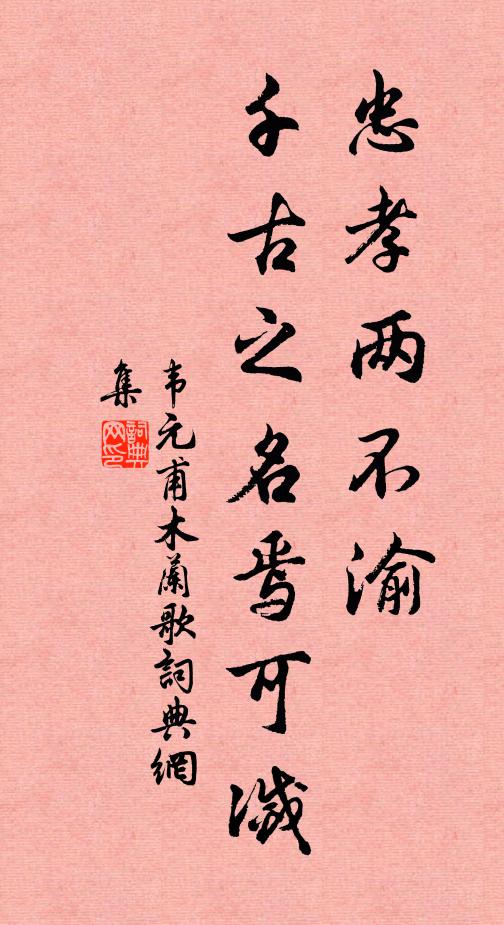 忠孝两不渝
千古之名焉可滅
韦元甫木蘭歌詞典網
集
詞典网印